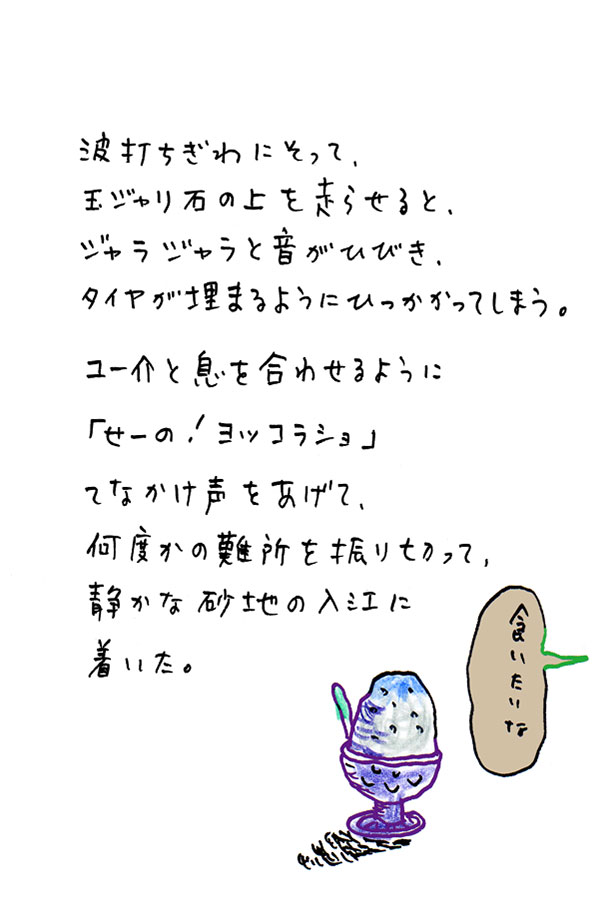 波打ちぎわにそって、
玉ジャリ石の上を走らせると、
ジャラジャラと音がひびき、
タイヤが埋まるようにひっかかってしまう。
ユー介と息を合わせるように
「せーの!ヨッコラショ」
てなかけ声をあげて、
何度かの難所を振り切って、
静かな砂地の入江に
着いた。
食いたいな